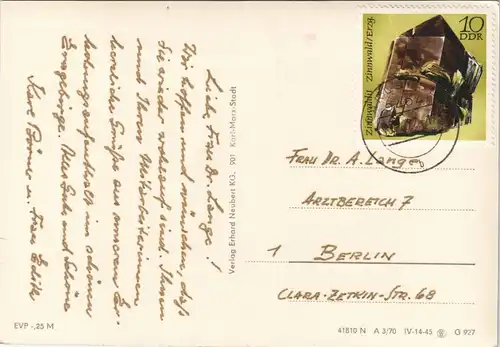 Liebe Frau Dr. Lange!
Wir hoffen und wünschen, daß
Sie wieder wohlauf sind. Ihnen
und Ihren Mitarbeiterinnen
herzliche Grüße aus unserem Er-
holungsaufenthalt im schönen
Erzgebirge. Alles Gute und Schöne
Karl u. Frau Edith
Verlag Erhard Neubert KG, 901 Karl-Marx-Stadt
10
DDR
Zinnwaldit Zinnwald/Erzg.
FRAU DR. A. LANGE
ARZTBEREICH 7
1 BERLIN
CLARA-ZETKIN-STR. 68
EVP -,25 M
41810 N A 3/70 IV-14-45 G 927